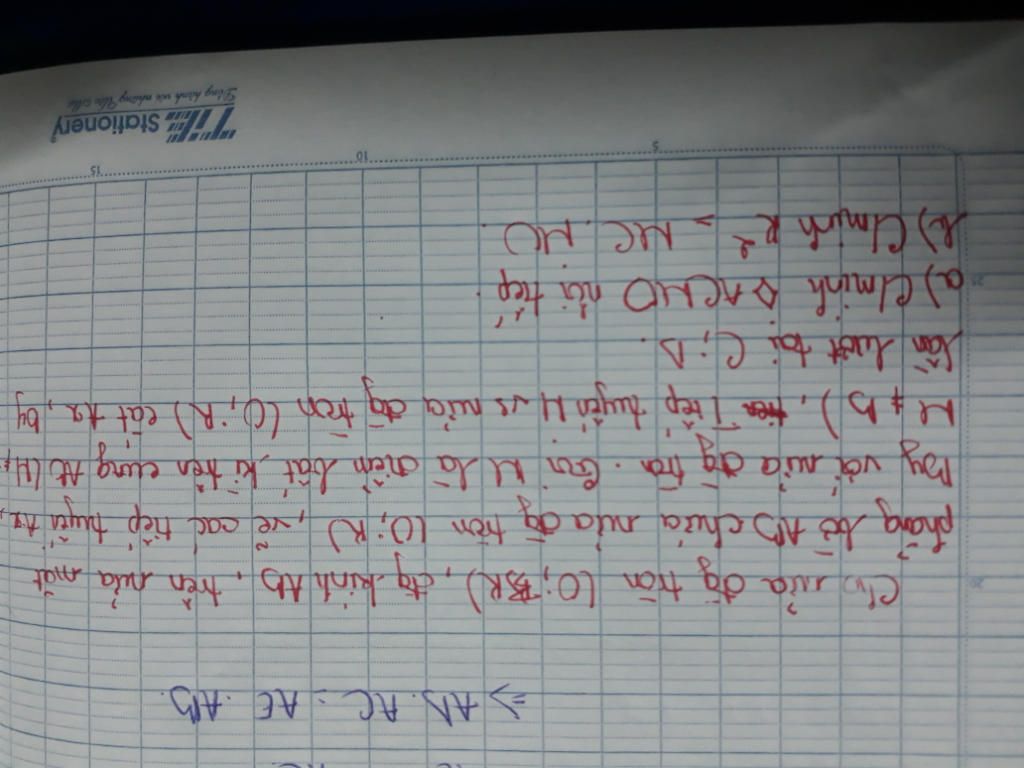 ⇒ AD. AC = AE. AB.
Cho nửa đg tròn (O; R), đg kính AB, trên nửa mặt
phẳng bờ AB chứa nửa đg tròn (O; R), vẽ các tiếp tuyến Ax,
By với nửa đg tròn. Gọi M là điểm bất kì trên cung AB (M ≠
M ≠ B), Tiếp tuyến M vs nửa đg tròn (O; R) cắt Ax, By
lần lượt tại C; D.
a) C/minh ◊ ACMO nội tiếp.
b) C/minh R² = MC. MD.
5
10
15
20
25
TiE Stationery
Đồng hành với những Ước mơ